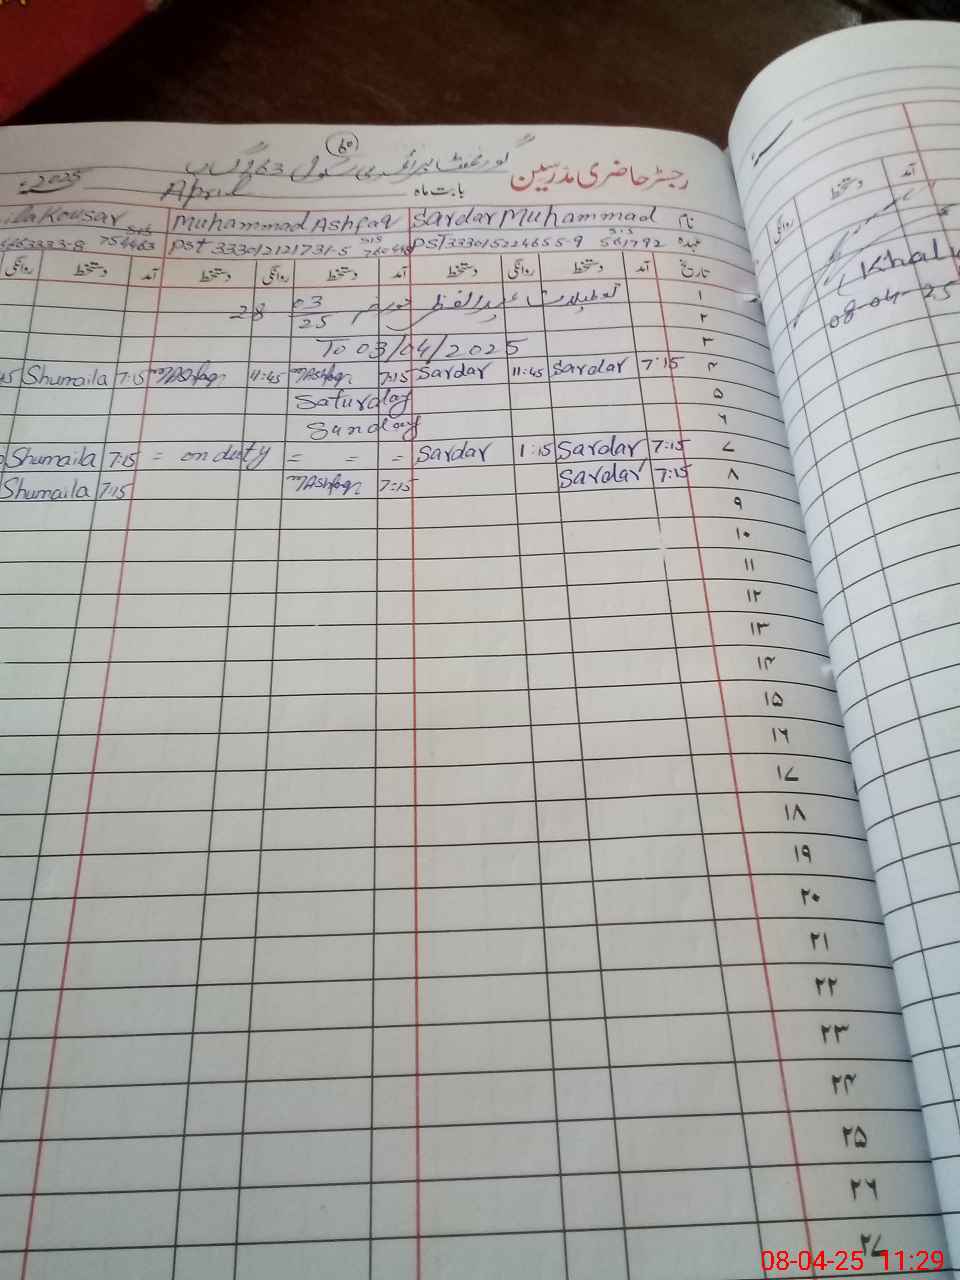 60
رجسٹر حاضری مدرسین گورنمنٹ پرائمری سکول
بابت ماہ April 2025ء
نام Sardar Muhammad Muhammad Ashfaq Kousar
عہدہ PST SIS 561792 PST 33301 SIS 754463
تاریخ آمد دستخط روانگی دستخط آمد دستخط روانگی دستخط آمد دستخط روانگی
۱ تعطیلات عید الفطر 28 03/25
۲
۳ To 03/04/2025
۴ 7:15 Sardar 11:45 Sardar 7:15 M Ashfaq 11:45 M Ashfaq 7:15 Shumaila
۵ Saturday
۶ Sunday
۷ 7:15 Sardar 1:15 Sardar = = = on duty = 7:15 Shumaila
۸ 7:15 Sardar 7:15 M Ashfaq 7:15 Shumaila
۹
۱۰
۱۱
۱۲
۱۳
۱۴
۱۵
۱۶
۱۷
۱۸
۱۹
۲۰
۲۱
۲۲
۲۳
۲۴
۲۵
۲۶
۲۷
آمد دستخط روانگی
08-04-25
08-04-25 11:29